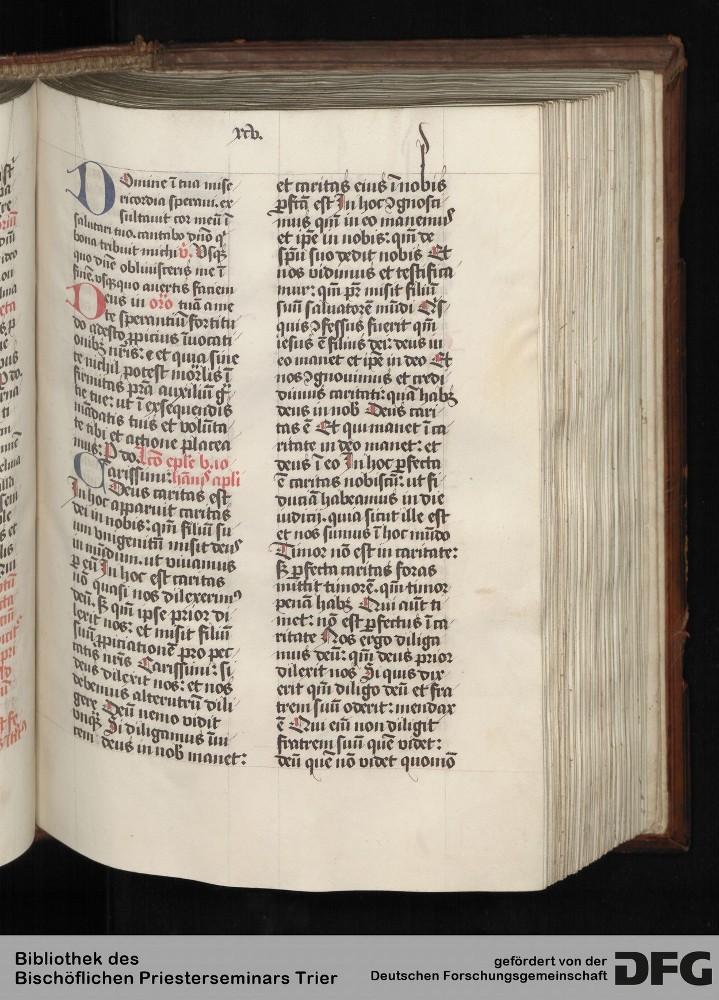 xcv.
Domine ī tua mise
ricordia speraui. ex
sultauit cor meū ī
salutari tuo. cantabo dn̄o qͥ
bona tribuit michi v̄. Vsqꝫ
quo dn̄e obliuisceris me ī
finē. vsqꝫquo auertis faciem
Deus in orō tuā a me
te sperantiū fortitu
do adesto ꝓpicius īuocati
onibꝫ nr̄is: et quia sine
te nichil potest mōrlis ī
firmitas pr̄a auxiliū gr̄
tie tue: ut ī exsequendis
mādatis tuis et volūta
te tibi et actione placea
mus. P do. lcō epłe b. io
Carissimi: hāniſ apłi
Deus caritas est
In hoc apparuit caritas
dei in nobis: qm̄ filiū su
um vnigenitū misit deuꝰ
in mūdum. ut viuamus
ꝑ eū In hoc est caritas
nō quasi nos dilexerimꝰ
deū. sꝫ qm̄ ipse prior di
lexit nos: et misit filiū
suū ꝓpiciationē pro pec
catis nr̄is Carissimi: si
deus dilexit nos: et nos
debemus alterutrū dili
gere Deū nemo vidit
vnqꝫ Si diligamus īui
cem deus in nob manet:
et caritas eius ī nobis
ꝑfcā est In hoc ꝯgnosci
mus qm̄ in eo manemuꝰ
et ip̄e in nobis: qm̄ de
sp̄u suo dedit nobis Et
nos vidimus et testifica
mur: qm̄ pr̄ misit filiū
suū saluatorē mūdi Qͥs
quis ꝯfessus fuerit qm̄
iesus ē filius dei: deus in
eo manet et ip̄e in deo Et
nos ꝯgnouimus et credi
dimus caritati: quā habꝫ
deus in nob Deus cari
tas ē Et qui manet ī ca
ritate in deo manet: et
deus ī eo In hoc ꝑfecta
ē caritas nobiscū: ut fi
duciā habeamus in die
iudicij. quia sicut ille est
et nos sumus ī hoc mūdo
Timor nō est in caritate:
sꝫ ꝑfecta caritas foras
mittit timorē. qm̄ timor
penā habꝫ Qui aūt ti
met: nō est ꝑfectus ī ca
ritate Nos ergo diliga
mus deū: qm̄ deus prior
dilexit nos Si quis dix
erit qm̄ diligo deū et fra
trem suū oderit: mendax
ē Qui eīm non diligit
fratrem suū quē videt:
deū quē nō videt quomō
Bibliothek des
Bischöflichen Priesterseminars Trier
gefördert von der
Deutschen Forschungsgemeinschaft
DFG